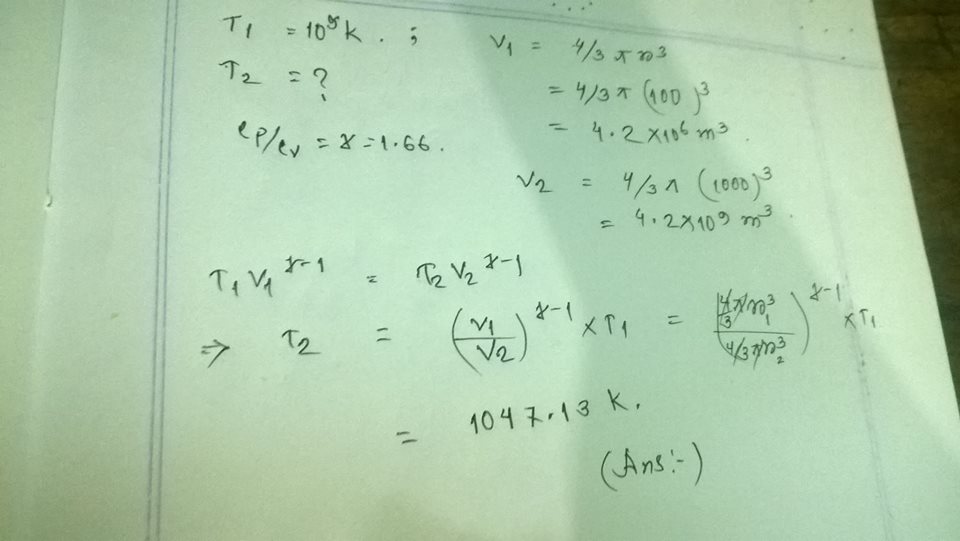 T1 = 10⁹K. ;
T2 = ?
cp/cv = γ = 1.66.
V1 = 4/3 π r³
= 4/3 π (100)³
= 4.2 × 10⁶ m³.
V2 = 4/3 π (1000)³
= 4.2 × 10⁹ m³.
T1 V1^γ-1 = T2 V2^γ-1
⇒ T2 = (V1/V2)^γ-1 × T1 = (4/3 π r1³ / 4/3 π r2³)^γ-1 × T1
= 1047.13 K.
(Ans:-)